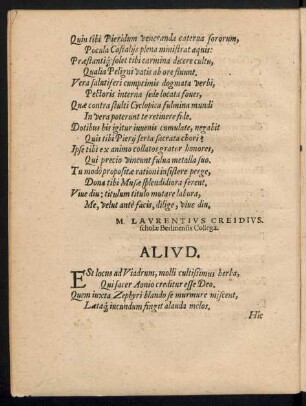 Quin tibi Pieridum veneranda caterva sororum,
Pocula Castalijs plena ministrat aquis:
Præstantiq́; solet tibi carmina dicere cultu,
Qualia Peligni vatis ab ore fluunt.
Vera salutiferi cumprimis dogmata verbi,
Pectoris interna sede locata foves,
Quæ contra stulti Cyclopica fulmina mundi
In vera poterunt te retinere fide.
Dotibus his igitur iuvenis cumulate, negabit
Quis tibi Pierij serta sacrata chori?
Ipse tibi ex animo collatos grator honores,
Qui precio vincunt fulva metalla suo.
Tu modo propositæ rationi insistere perge,
Dona tibi Musæ splendidiora ferent.
Vive diu; titulum titulo mutare labora,
Me, velut ante facis, dilige, vive diu,
M. LAVRENTIVS CREIDIVS.
scholæ Berlinensis Collega.
ALIVD.
ESt locus ad Viadrum, molli cultissimus herba,
Qui sacer Aonio creditur esse Deo.
Quem iuxta Zephyri blando se murmure miscent,
Lætaq́; iucundum fingit alauda melos.
Hic